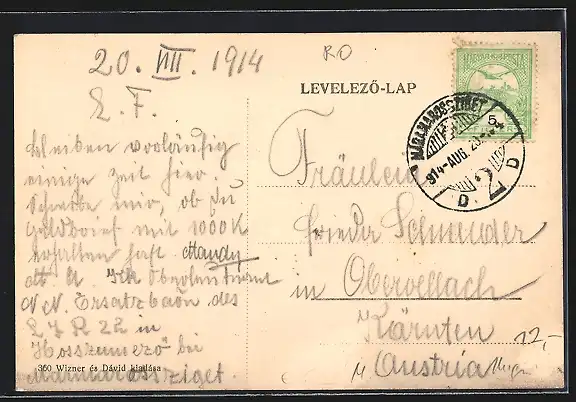 20. VIII. 1914
RO
L. F.
LEVELEZŐ-LAP
MÁRAMAROSSZIGET
914 AUG. 20
D. 2 D
bleiben vorläufig
einige Zeit hier.
Schreibe mir, ob du
Geldbrief mit 1000 K
erhalten hast
Oberleutnant
N N. Ersatzbaon des
L I R 22 in
"Hosszumezö" bei
Mármarossziget.
Fräulein
Frieder Schneider
in Obervellach
Kärnten
Austria
12,-
360 Wizner és Dávid kiadása